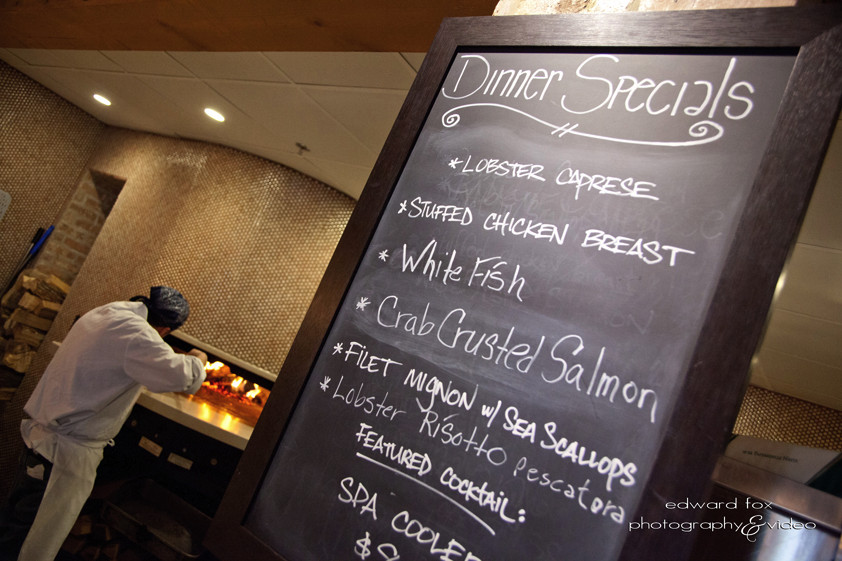 Dinner Specials
*LOBSTER CAPRESE
*STUFFED CHICKEN BREAST
* White Fish
* Crab Crusted Salmon
*FILET MIGNON w/ SEA SCALLOPS
*Lobster Risotto Pescatora
FEATURED COCKTAIL:
SPA COOLER
edward fox
photography & video